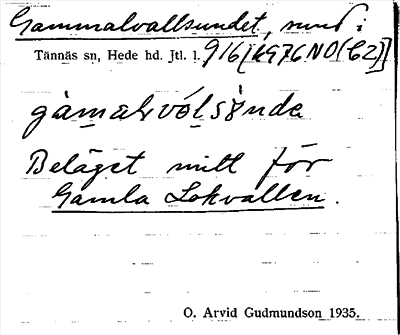 Gammalvallsundet, sund i
Tännäs sn, Hede hd. Jtl. l. 916[kg76NO(C2)]
Beläget mitt för
Gamla Lokvallen.
O. Arvid Gudmundson 1935.